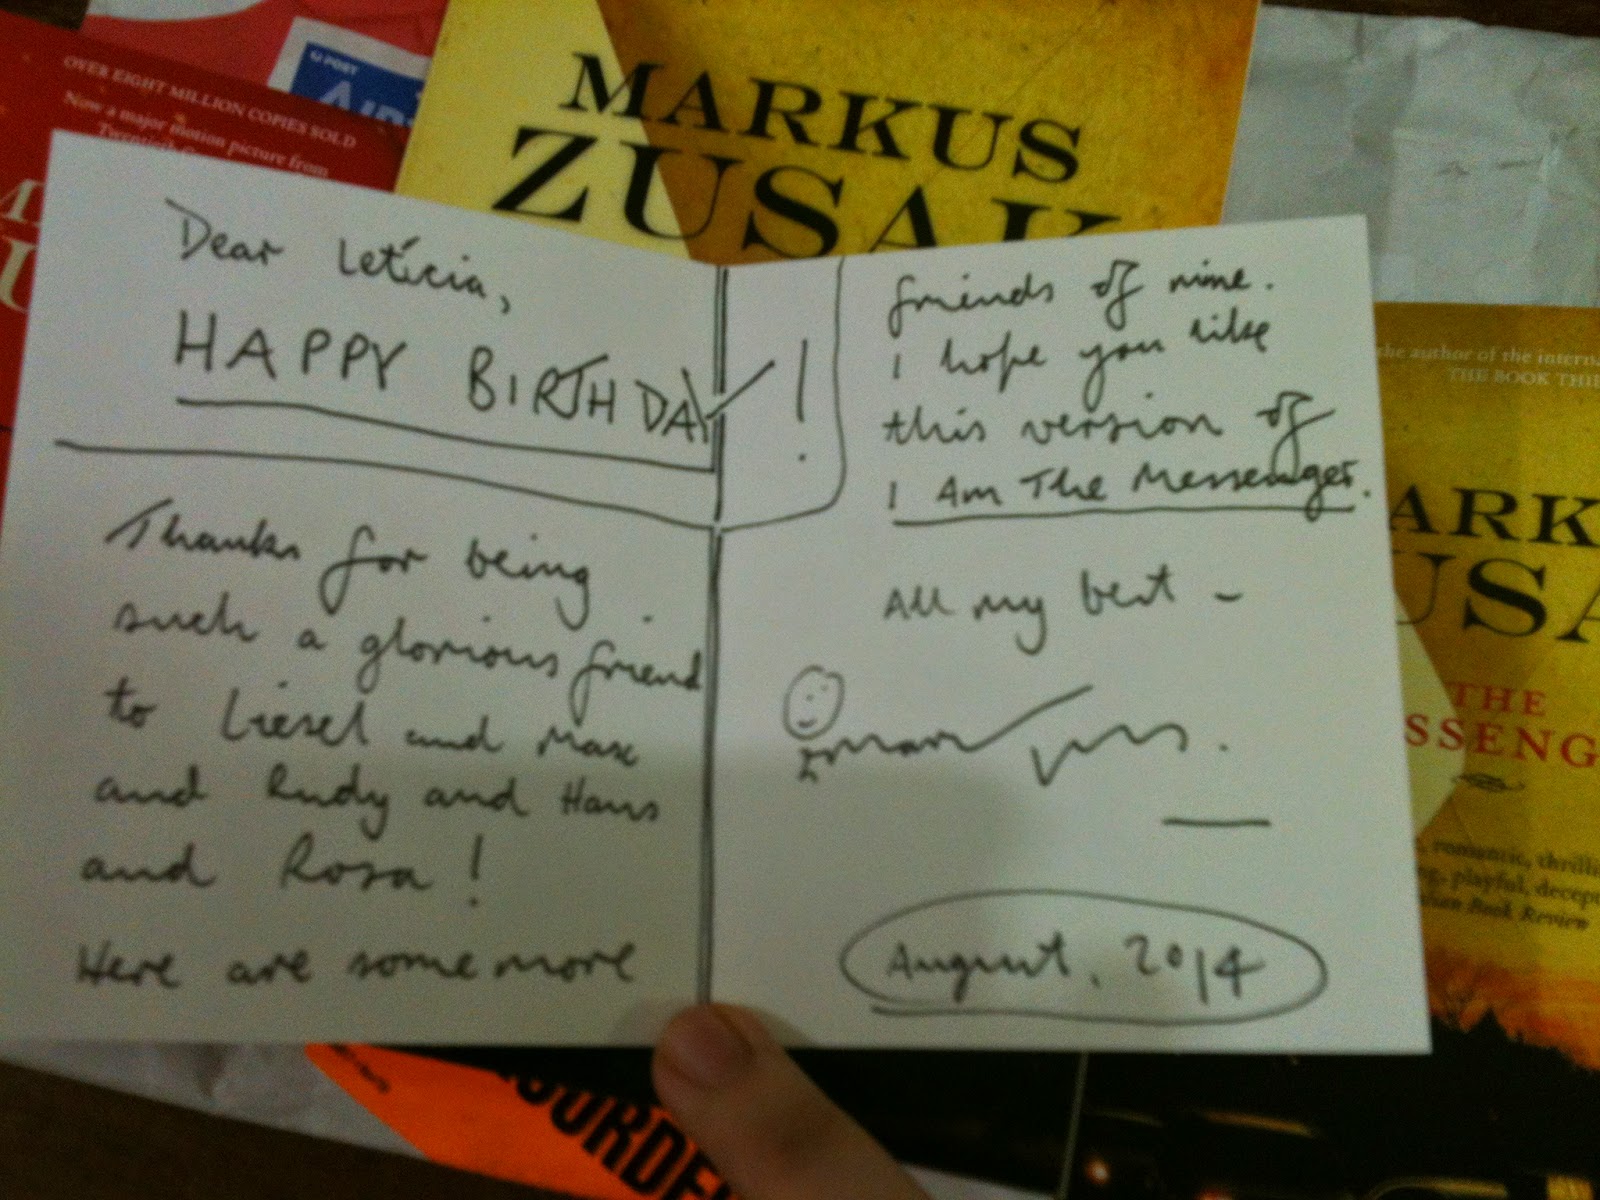 OVER EIGHT MILLION COPIES SOLD
Now a major motion picture from
Twentieth
POST
MARKUS
ZUSAK
Dear Letícia,
HAPPY BIRTHDAY!
Thanks for being
such a glorious friend
to Liesel and Max
and Rudy and Hans
and Rosa!
Here are some more
friends of mine.
I hope you like
this version of
I Am The Messenger.
All my best –
August, 2014
the author of the interna
THE BOOK THIE
ARK
USA
THE
SSENG
romantic, thrilli
playful, decep
Book Review